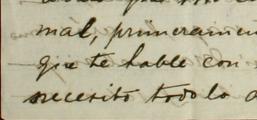 mal, primeramen
que te hable con
necesito todo lo